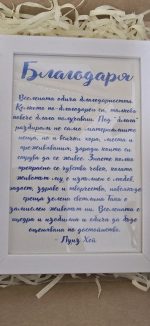 Благодаря
Вселената обича благодарността.
Колкото по-благодарни си, толкова
повече блага получаваш. Под "блага"
разбирам не само материалните
неща, но и всички хора, места и
преживявания, заради които си
струва да се живее. Знаете колко
прекрасно се чувства човек, когато
животът му е изпълнен с любов,
радост, здраве и творчество, навсякъде
среща зелени светлини. Така е
замислен животът ни. Вселената е
щедра и изобилна и обича да бъде
оценявана по достойнство.
- Луиз Хей